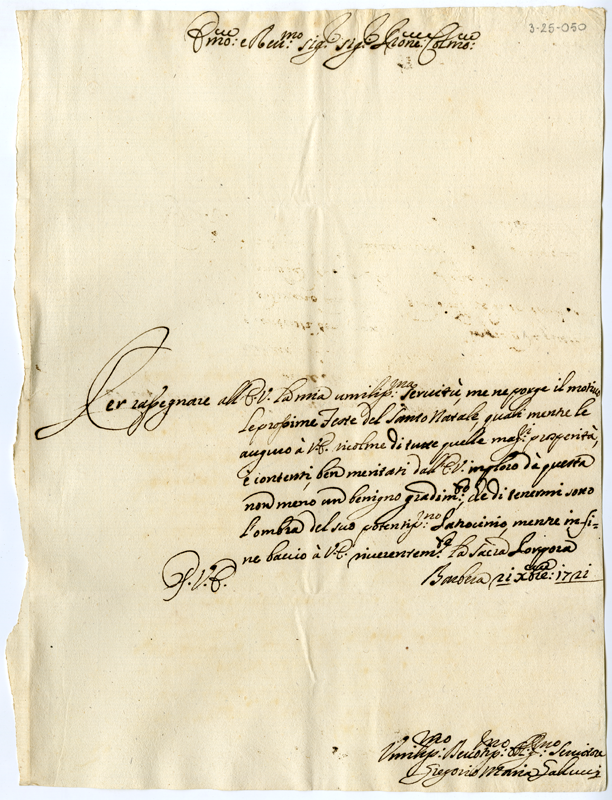 3-25-050
Emo: e Reu:mo sig.r sig.r Prone: Colmo:
Per rassegnare all'E.V. la mia umiliss:ma seruitù, me ne porge il motiuo
le prossime Feste del Santo Natale, quali mentre le
auguro à V.E. ricolme di tutte quelle mag:ri prosperità,
è contenti, ben meritati dall'E.V. imploro dà questa
non meno un benigno gradim:to, che di tenermi sotto
l'ombra del suo potentiss:mo Patrocinio mentre in fi-
ne baccio à V.E. riuerentem:te la Sacra Porpora
D. V. E.
Barbera 21 Xbre: 1721
Umiliss:mo Deuotiss:mo Obl:mo Seruitore
Gregorio Maria Salucci